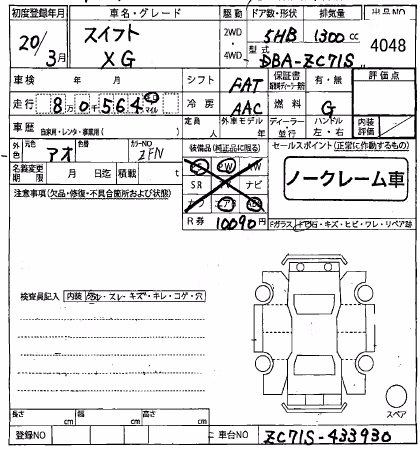 初度登録年月 車名・グレード 駆動 ドア数・形状 排気量 出品NO
20/3月 スイフト XG 2WD・4WD 5HB 1300cc 4048
型式 DBA-ZC71S
車検 年 月 シフト FAT 保証書 有・無 評価点
走行 8万0千564 冷房 AAC 燃料 G
車歴 自家用・レンタ・事業用( ) 定員 人 外車モデル 年 ディーラー・並行 ハンドル 左・右 内装評価
外色 元色 アオ 色替 カラーNO ZFN 装備品(純正品に限る) セールスポイント(正常に作動するもの)
名義変更期限 月 日迄 積載 t SR ナビ ノークレーム車
注意事項(欠品・修復・不具合箇所および状態) エアB
R券 10090円 Fガラス キズ・ヒビ・ワレ・リペア跡
検査員記入 内装 スレ・キズ・キレ・コゲ・穴
スペア
長さ cm 幅 cm 高さ cm
登録NO 車台NO ZC71S-433930